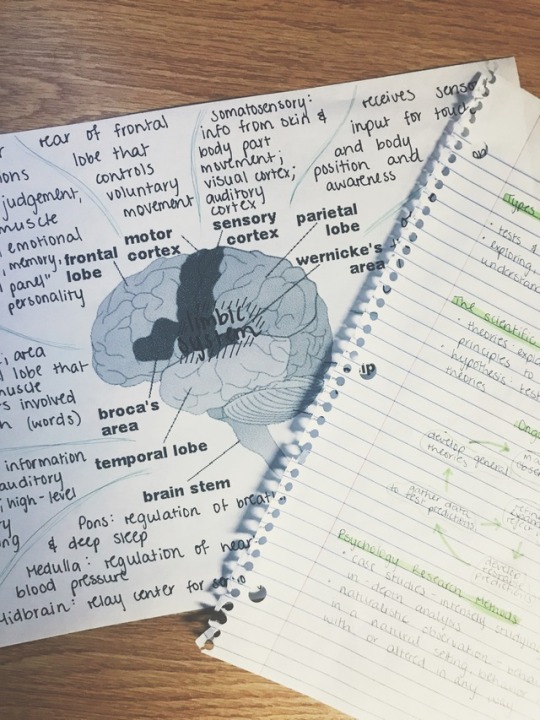 rear of frontal
lobe that
controls
voluntary
movement
somatosensory:
info from skin &
body part
movement;
visual cortex;
auditory
cortex
receives senso
input for touch
and body
position and
awareness
judgement,
muscle
emotional
memory,
panel"
personality
frontal
lobe
motor
cortex
sensory
cortex
parietal
lobe
wernicke's
area
limbic
system
area
lobe that
muscle
involved
(words)
broca's
area
information
auditory
high-level
temporal lobe
brain stem
Pons: regulation of breat
& deep sleep
Medulla: regulation of hear
blood pressure
Midbrain: relay center for
ip
Types
• tests &
• exploring,
The scientific
• theories: expla
principles to
• hypothesis: test
theories
develop general
theories
gather data
to test predictions
develop
Psychology Research Methods
• case studies - intensely studying
in-depth analysis
• naturalistic observation - behav
in a natural setting, behavior
with or altered in any way